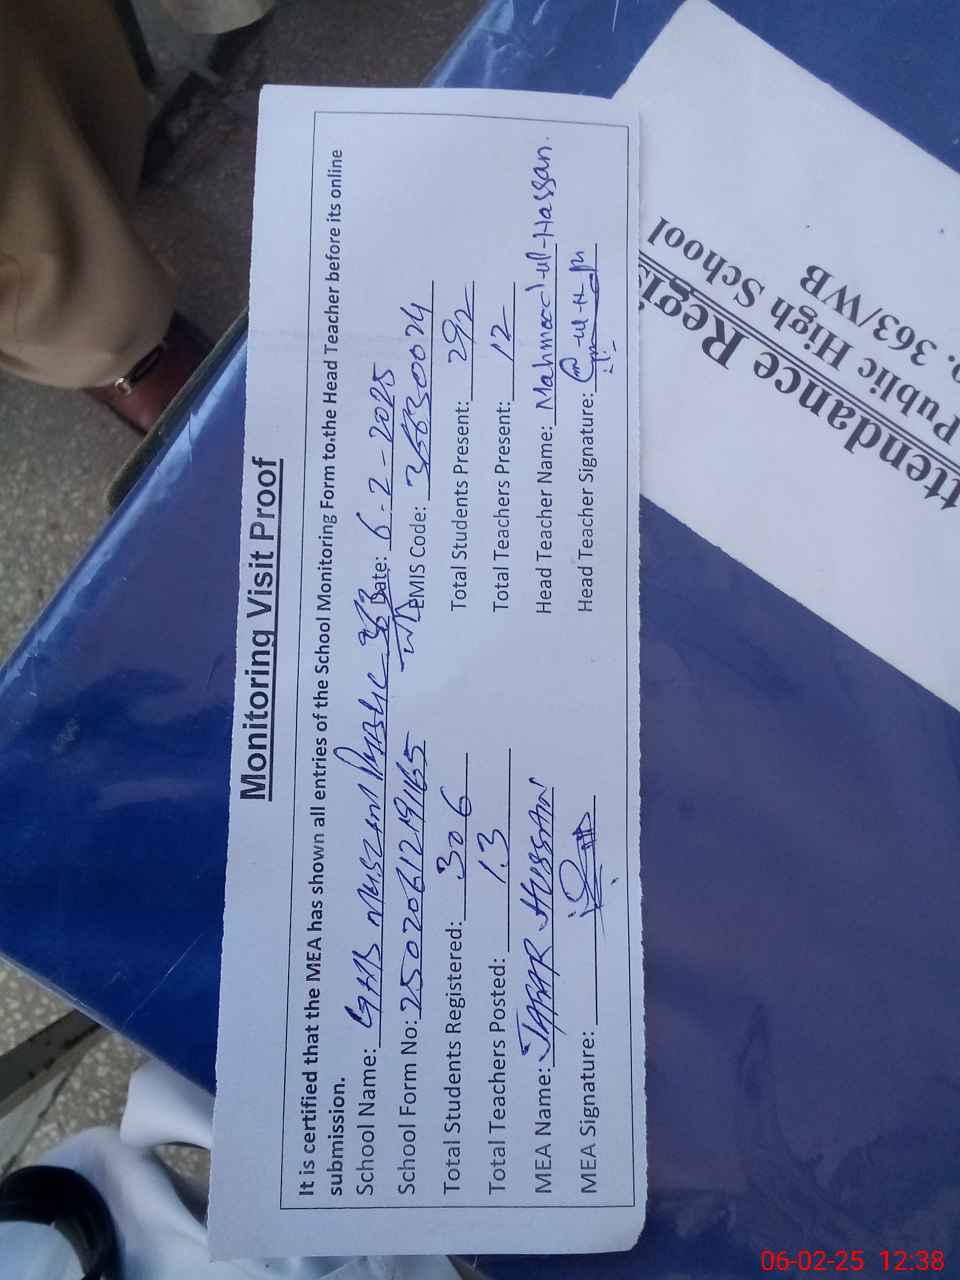 Monitoring Visit Proof
It is certified that the MEA has shown all entries of the School Monitoring Form to the Head Teacher before its online
submission.
School Name: GHS Muslim Public 363 WB Date: 6-2-2025
School Form No: EMIS Code:
Total Students Registered: 306 Total Students Present: 292
Total Teachers Posted: 13 Total Teachers Present: 12
MEA Name: JAFAR HUSSAIN Head Teacher Name: Mahmood-ul-Hassan.
MEA Signature: Head Teacher Signature:
ttendance Regis
Public High School
o. 363/WB
06-02-25 12:38